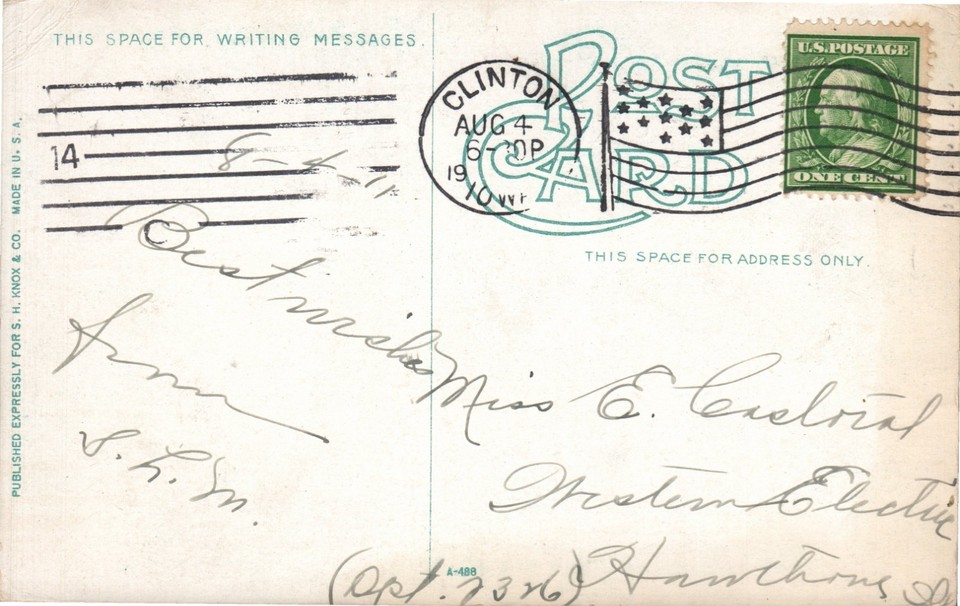 THIS SPACE FOR WRITING MESSAGES.
POST
CARD
CLINTON
AUG 4
6-30P
1910
U.S. POSTAGE
ONE CENT
14
8-4-11
THIS SPACE FOR ADDRESS ONLY.
Best wishes
from
S. L. M.
Miss E. Castoral
Western Electric
Hawthorne
(Dpt. 7326)
A-488
PUBLISHED EXPRESSLY FOR S. H. KNOX & CO. MADE IN U. S. A.